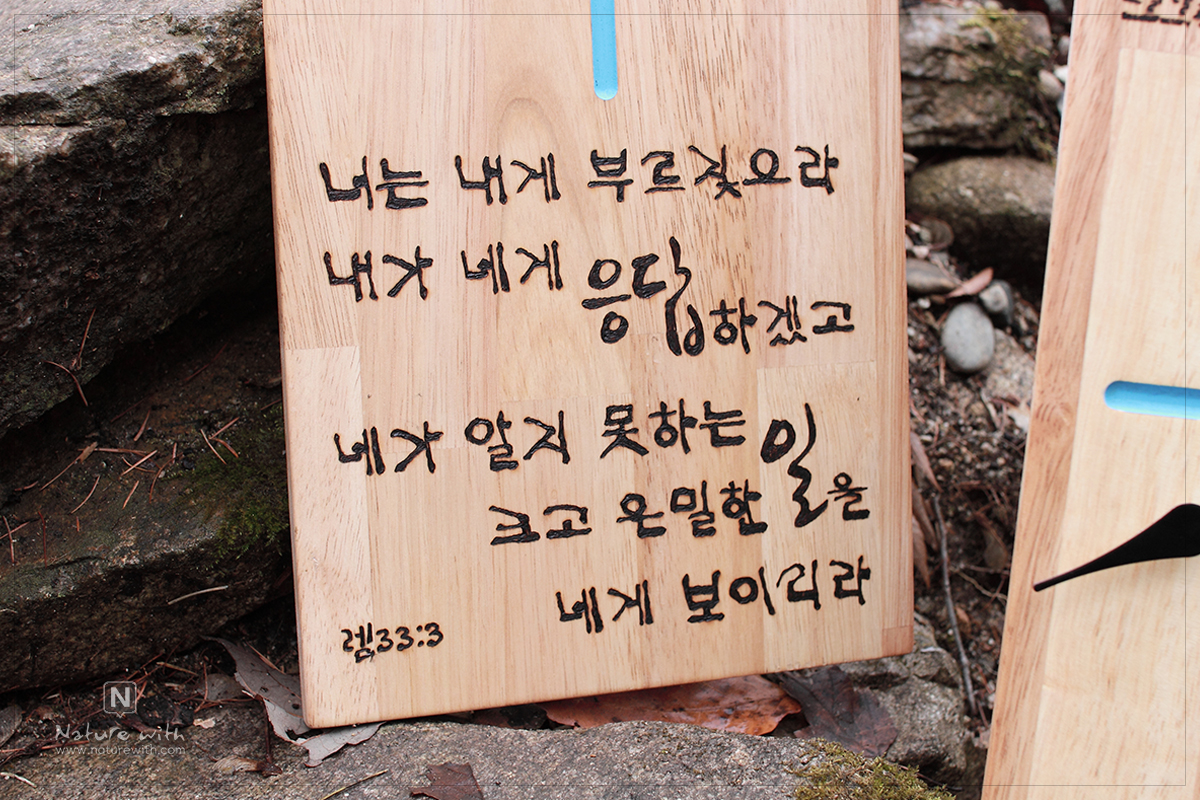 너는 내게 부르짖으라
내가 네게 응답하겠고
네가 알지 못하는 일을
크고 은밀한
네게 보이리라
렘33:3
N
Nature with
www.naturewith.com